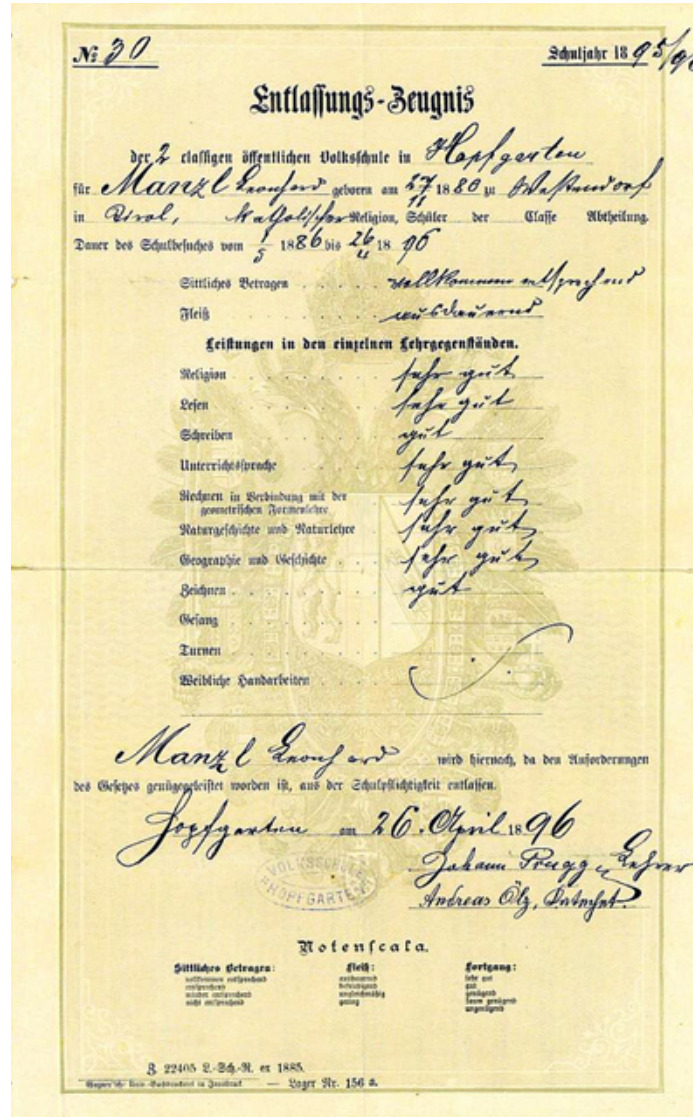 № 30 Schuljahr 1895/96
Entlassungs-Zeugnis
der 2 classigen öffentlichen Volksschule in Hopfgarten
für Manzl Leonhard geboren am 27/11 1880 zu Westendorf
in Tirol, katholischer Religion, Schüler der Classe Abtheilung.
Dauer des Schulbesuches vom 1/5 1886 bis 26/4 1896
Sittliches Betragen . . . . . vollkommen entsprechend
Fleiß . . . . . ausdauernd
Leistungen in den einzelnen Lehrgegenständen.
Religion . . . . . sehr gut
Lesen . . . . . sehr gut
Schreiben . . . . . gut
Unterrichtssprache . . . . . sehr gut
Rechnen in Verbindung mit der
geometrischen Formenlehre . . . . . sehr gut
Naturgeschichte und Naturlehre . . sehr gut
Geographie und Geschichte . . . . sehr gut
Zeichnen . . . . . gut
Gesang . . . . .
Turnen . . . . .
Weibliche Handarbeiten . . . . .
Manzl Leonhard wird hiernach, da den Anforderungen
des Gesetzes genügegeleistet worden ist, aus der Schulpflichtigkeit entlassen.
Hopfgarten am 26. April 1896
VOLKSSCHULE
HOPFGARTEN
Johann Lehrer
Andreas Ölz, Katechet.
Notenscala.
Sittliches Betragen: Fleiß: Fortgang:
vollkommen entsprechend ausdauernd sehr gut
entsprechend befriedigend gut
minder entsprechend ungleichmäßig genügend
nicht entsprechend gering kaum genügend
ungenügend
Z. 22405 L.-Sch.-R. ex 1885.
Wagner'sche Univ.-Buchdruckerei in Innsbruck. — Lager Nr. 156 a.